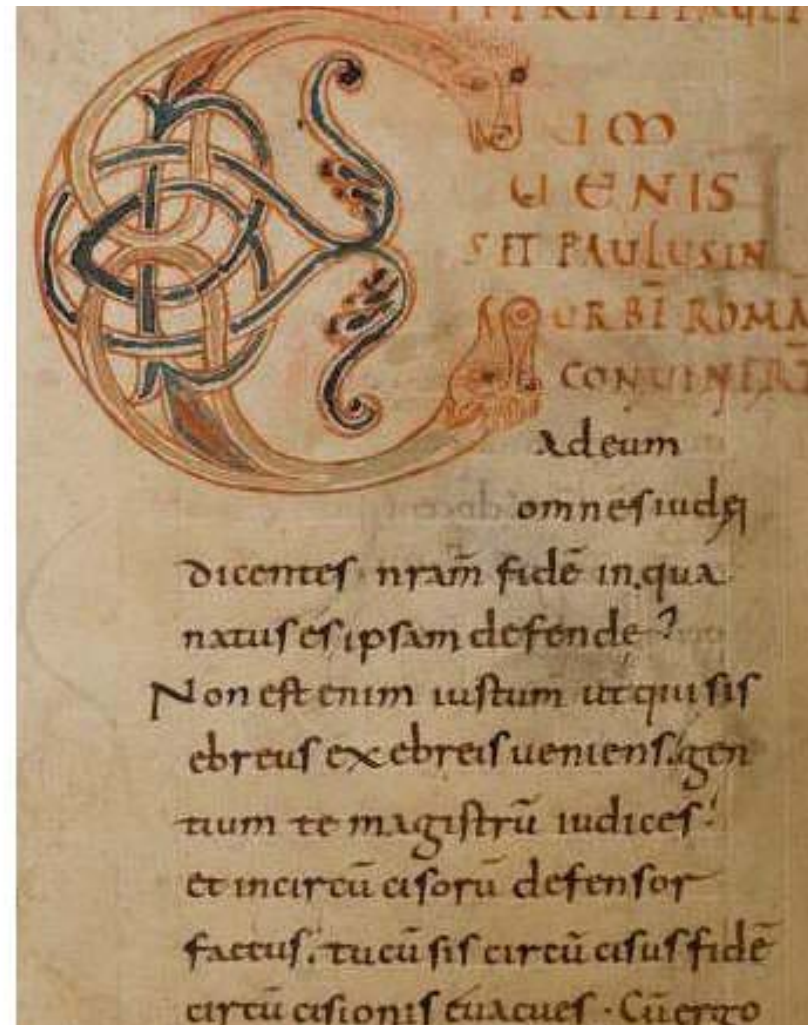 CUM
UENIS
SET PAULUS IN
URBĒ ROMĀ
CONUENERŪ
ad eum
omnes iudęi
dicentes · nram̄ fidē in qua
natus es ipsam defende?
Non est enim iustum ut qui sis
ebreus ex ebreis ueniens. gen
tium te magistrū iudices.
et incircū cisorū defensor
factus. tu cū sis circū cisus fidē
circū cisionis euacues · Cū ergo